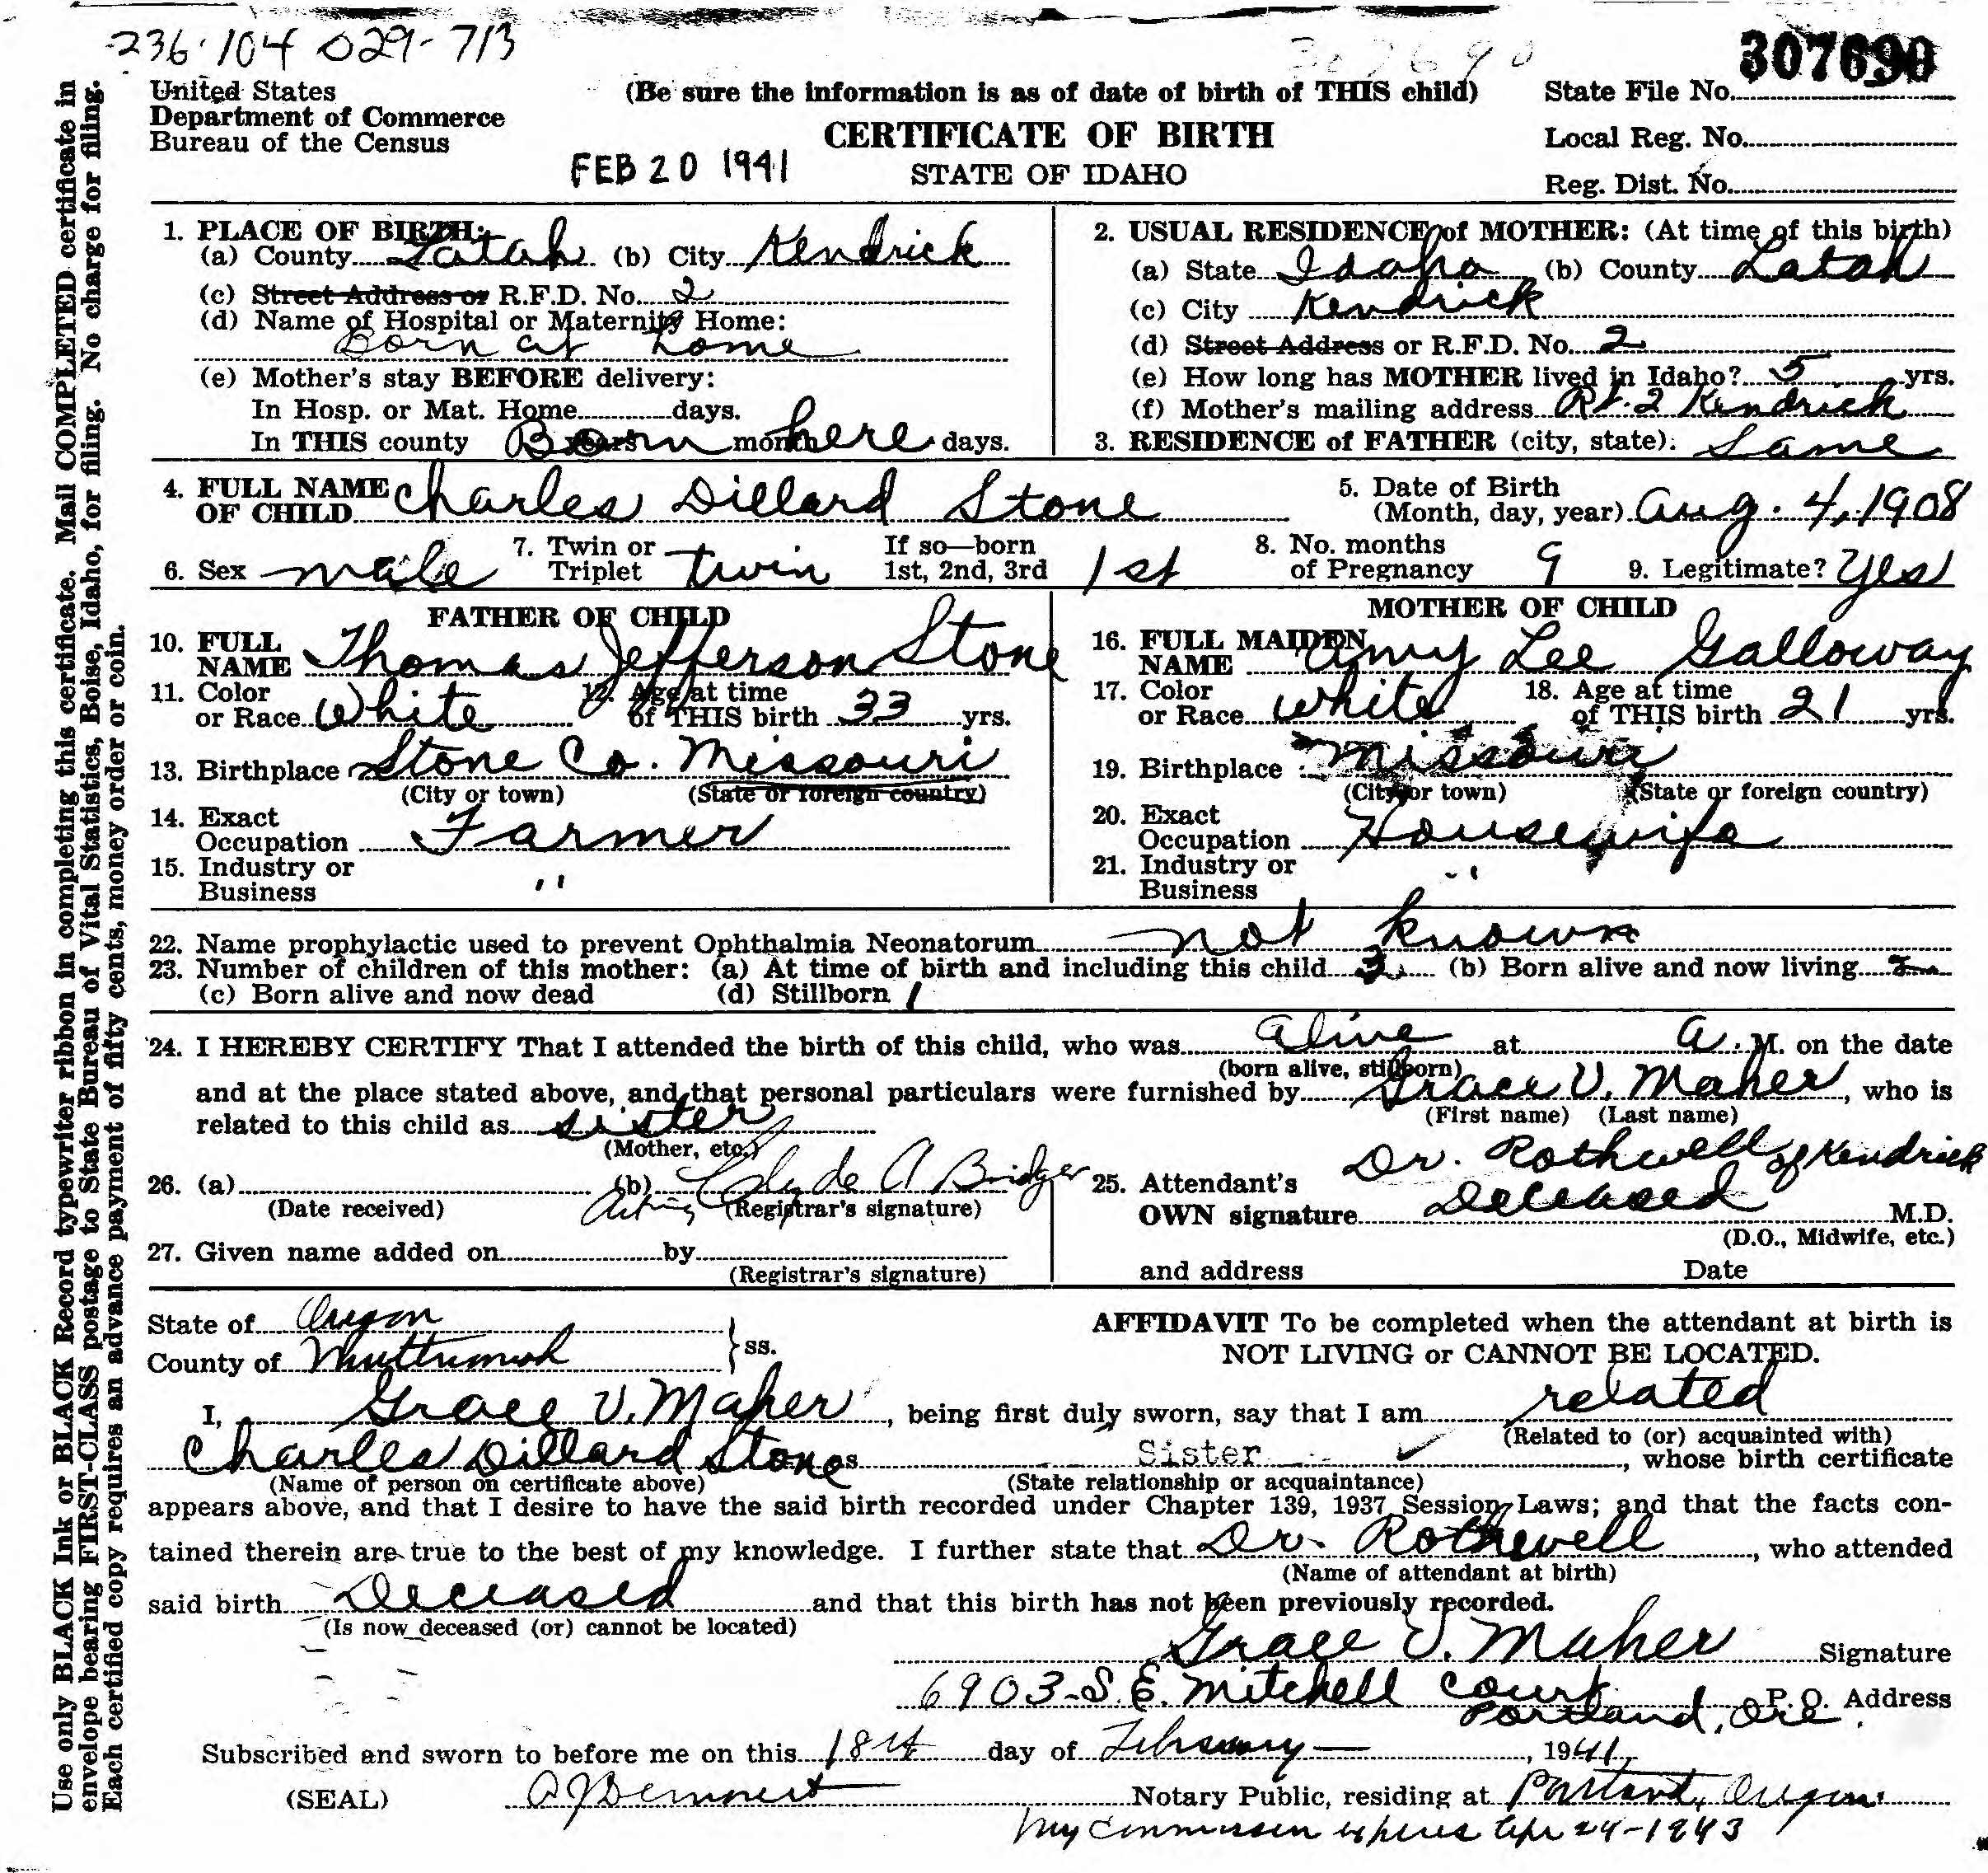 236-104 029-713
307690
307690
United States
Department of Commerce
Bureau of the Census
(Be sure the information is as of date of birth of THIS child)
CERTIFICATE OF BIRTH
STATE OF IDAHO
FEB 20 1941
State File No.
Local Reg. No.
Reg. Dist. No.
1. PLACE OF BIRTH:
(a) County Latah (b) City Kendrick
(c) Street Address or R.F.D. No. 2
(d) Name of Hospital or Maternity Home:
Born at home
(e) Mother's stay BEFORE delivery:
In Hosp. or Mat. Home days.
In THIS county years Born months here days.
2. USUAL RESIDENCE of MOTHER: (At time of this birth)
(a) State Idaho (b) County Latah
(c) City Kendrick
(d) Street Address or R.F.D. No. 2
(e) How long has MOTHER lived in Idaho? 5 yrs.
(f) Mother's mailing address Rt. 2 Kendrick
3. RESIDENCE of FATHER (city, state): Same
4. FULL NAME OF CHILD Charles Dillard Stone
5. Date of Birth (Month, day, year) Aug. 4, 1908
6. Sex male 7. Twin or Triplet twin If so—born 1st, 2nd, 3rd 1st 8. No. months of Pregnancy 9 9. Legitimate? Yes
FATHER OF CHILD
10. FULL NAME Thomas Jefferson Stone
11. Color or Race White 12. Age at time of THIS birth 33 yrs.
13. Birthplace Stone Co. Missouri
(City or town) (State or foreign country)
14. Exact Occupation Farmer
15. Industry or Business "
MOTHER OF CHILD
16. FULL MAIDEN NAME Amy Lee Galloway
17. Color or Race White 18. Age at time of THIS birth 21 yrs.
19. Birthplace Missouri
(City or town) (State or foreign country)
20. Exact Occupation Housewife
21. Industry or Business "
22. Name prophylactic used to prevent Ophthalmia Neonatorum not known
23. Number of children of this mother: (a) At time of birth and including this child 3 (b) Born alive and now living 2
(c) Born alive and now dead (d) Stillborn 1
24. I HEREBY CERTIFY That I attended the birth of this child, who was Alive at A. M. on the date
(born alive, stillborn)
and at the place stated above, and that personal particulars were furnished by Grace V. Maher, who is
(First name) (Last name)
related to this child as sister
(Mother, etc.)
26. (a) (b) Acting Clyde A Bridger
(Date received) (Registrar's signature)
27. Given name added on by
(Registrar's signature)
Dr. Rothwell of Kendrick
25. Attendant's OWN signature Deceased M.D.
(D.O., Midwife, etc.)
and address Date
State of Oregon
County of Multnomah } ss.
AFFIDAVIT To be completed when the attendant at birth is
NOT LIVING or CANNOT BE LOCATED.
I, Grace V. Maher, being first duly sworn, say that I am related
(Related to (or) acquainted with)
Charles Dillard Stone as Sister, whose birth certificate
(Name of person on certificate above) (State relationship or acquaintance)
appears above, and that I desire to have the said birth recorded under Chapter 139, 1937 Session Laws; and that the facts con-
tained therein are true to the best of my knowledge. I further state that Dr. Rothwell, who attended
(Name of attendant at birth)
said birth Deceased and that this birth has not been previously recorded.
(Is now deceased (or) cannot be located)
Grace V. Maher Signature
6903 - S.E. Mitchell Court
Portland, Ore. P.O. Address
Subscribed and sworn to before me on this 18th day of February, 1941
(SEAL) Notary Public, residing at Portland, Oregon.
My Commission expires 24-1943
Use only BLACK Ink or BLACK Record typewriter ribbon in completing this certificate. Mail COMPLETED certificate in
envelope bearing FIRST-CLASS postage to State Bureau of Vital Statistics, Boise, Idaho, for filing. No charge for filing.
Each certified copy requires an advance payment of fifty cents, money order or coin.